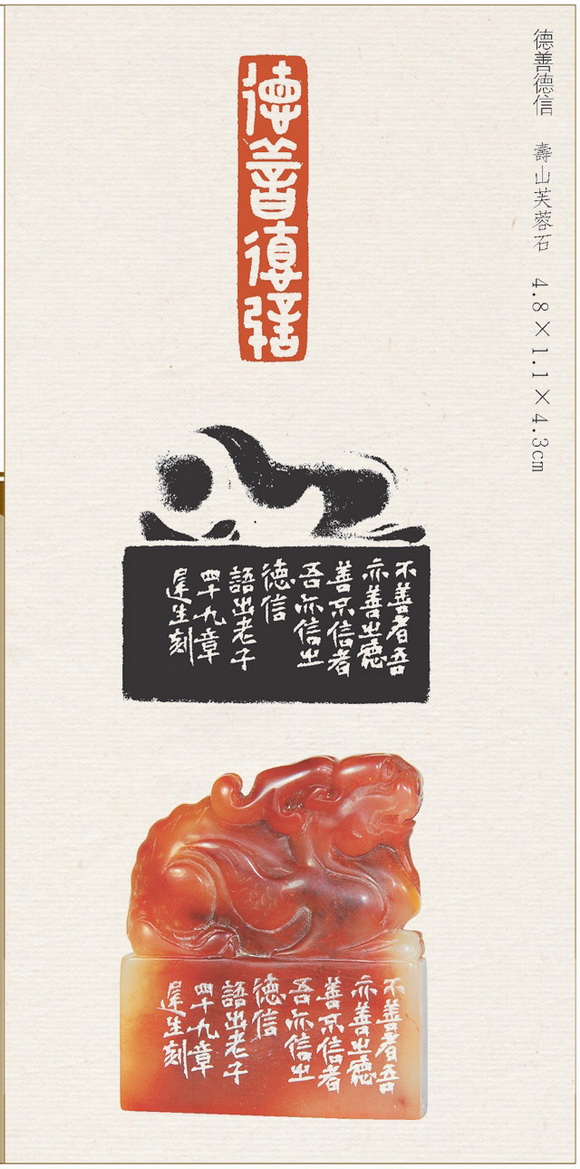 德善德信 壽山芙蓉石 4.8×1.1×4.3cm
德善德信
不善者吾
亦善之德
善不信者
吾亦信之
德信
語出老子
四十九章
生刻
不善者吾
亦善之德
善不信者
吾亦信之
德信
語出老子
四十九章
生刻